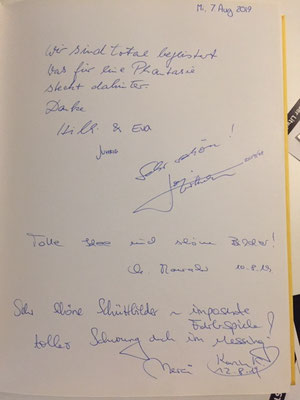 Mi, 7. Aug 2019
Wir sind total begeistert
Was für eine Phantasie
steckt dahinter
Danke
& Eva
Sehr schön!
Tolle und schöne Bilder!
10.8.19
Sehr schöne Schüttbilder – imposante
Farbspiele!
toller Schwung auch im Messing!
12.8.19